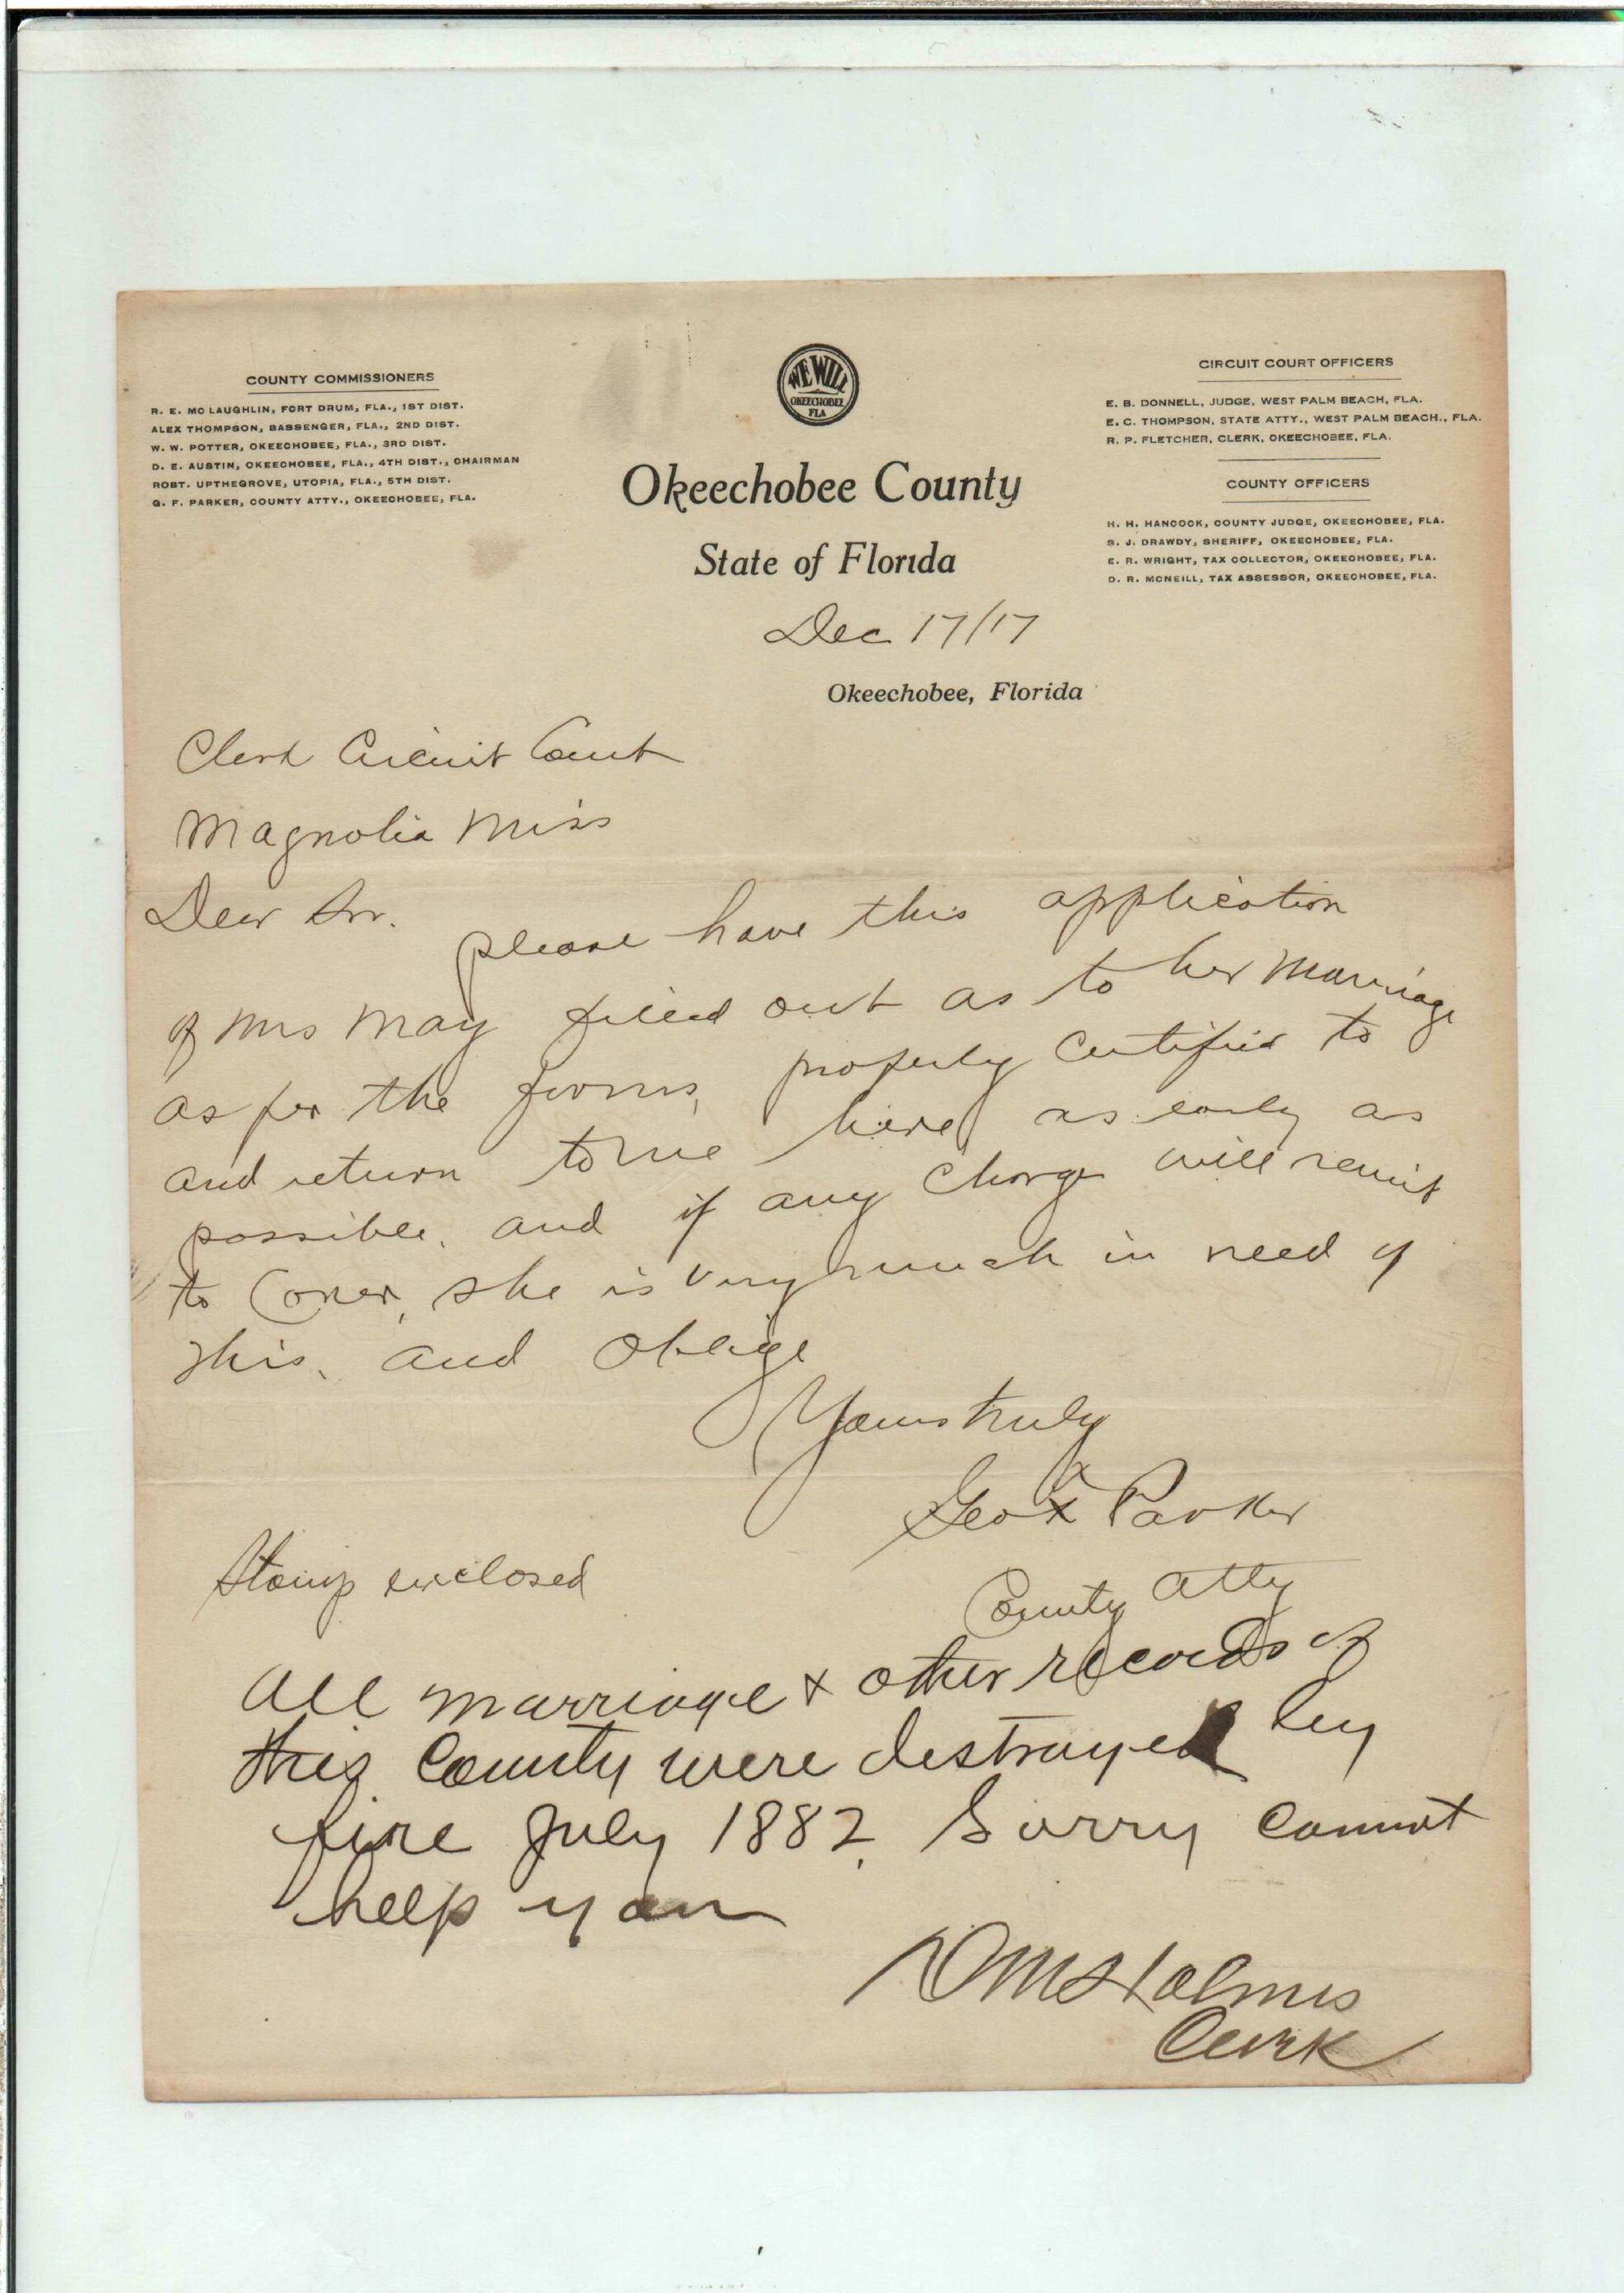 COUNTY COMMISSIONERS
R. E. MC LAUGHLIN, FORT DRUM, FLA., 1ST DIST.
ALEX THOMPSON, BASSENGER, FLA., 2ND DIST.
W. W. POTTER, OKEECHOBEE, FLA., 3RD DIST.
D. E. AUSTIN, OKEECHOBEE, FLA., 4TH DIST., CHAIRMAN
ROBT. UPTHEGROVE, UTOPIA, FLA., 5TH DIST.
G. F. PARKER, COUNTY ATTY., OKEECHOBEE, FLA.
WE WILL
OKEECHOBEE
FLA
CIRCUIT COURT OFFICERS
E. B. DONNELL, JUDGE, WEST PALM BEACH, FLA.
E. C. THOMPSON, STATE ATTY., WEST PALM BEACH., FLA.
R. P. FLETCHER, CLERK, OKEECHOBEE, FLA.
COUNTY OFFICERS
H. H. HANCOCK, COUNTY JUDGE, OKEECHOBEE, FLA.
S. J. DRAWDY, SHERIFF, OKEECHOBEE, FLA.
E. R. WRIGHT, TAX COLLECTOR, OKEECHOBEE, FLA.
D. R. MCNEILL, TAX ASSESSOR, OKEECHOBEE, FLA.
Okeechobee County
State of Florida
Dec 17/17
Okeechobee, Florida
Clerk Circuit Court
Magnolia Miss
Dear Sir.
please have this application
of Mrs May filled out as to her marriage
as per the forms, properly certified to
and return to me here as early as
possible. and if any charge will remit
to Cover, she is very much in need of
this, and Oblige
Yours truly
Geo F Parker
County Atty
Stamp enclosed
All marriage & other records of
this County were destroyed by
fire July 1882. Sorry cannot
help you
Holmes
Clerk